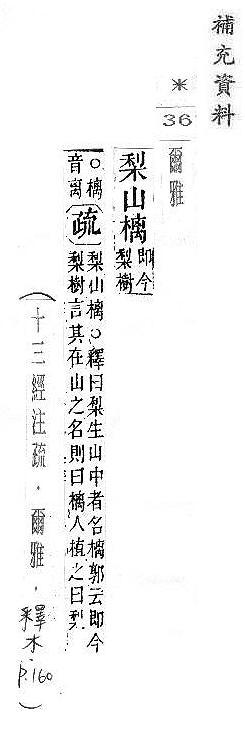 補充資料
＊
36
爾雅
梨山樆 即今
梨樹
○樆
音离 疏 梨山樆○釋曰梨生山中者名樆郭云即今
梨樹言其在山之名則曰樆人植之曰梨
（十三經注疏．爾雅．釋木．P.160）